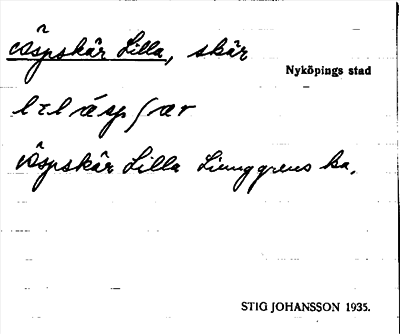 Äspskär Lilla, skär
Nyköpings stad
Äspskär Lilla Liunggrens ka.
STIG JOHANSSON 1935.